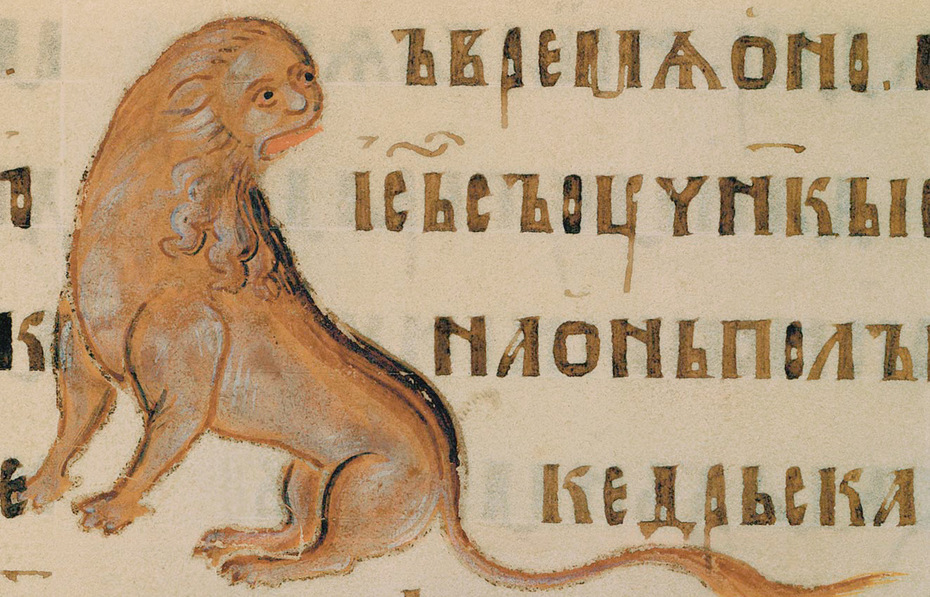 ЪВРЕМѦОНО.
ІС҃ЬСЪОУЧН҃КЫ
К НАОНЬПОЛЪ
Е КЕДРЬСКА